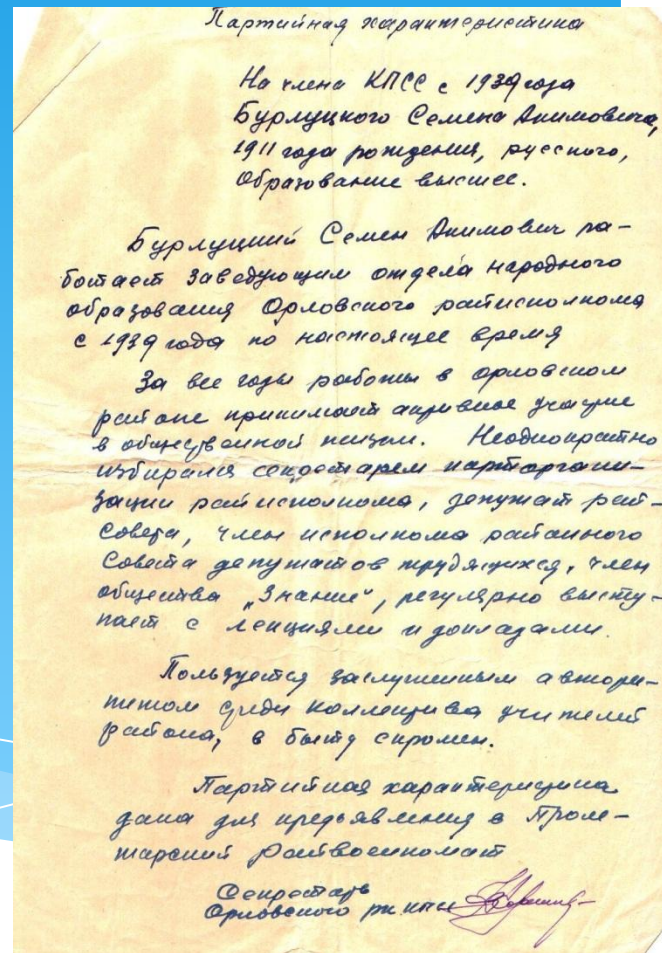 Партийная характеристика
На члена КПСС с 1939 года
Бурлуцкого Семена Акимовича,
1911 года рождения, русского,
образование высшее.
Бурлуцкий Семен Акимович ра-
ботает заведующим отдела народного
образования Орловского райисполкома
с 1939 года по настоящее время
За все годы работы в орловском
районе принимает активное участие
в общественной жизни. Неоднократно
избирался секретарем парторгани-
зации райисполкома, депутат рай-
совета, член исполкома районного
Совета депутатов трудящихся, член
общества „Знание“, регулярно высту-
пает с лекциями и докладами.
Пользуется заслуженным автори-
тетом среди коллектива учителей
района, в быту скромен.
Партийная характеристика
дана для предъявления в Проле-
тарский райвоенкомат
Секретарь
Орловского рк кпсс